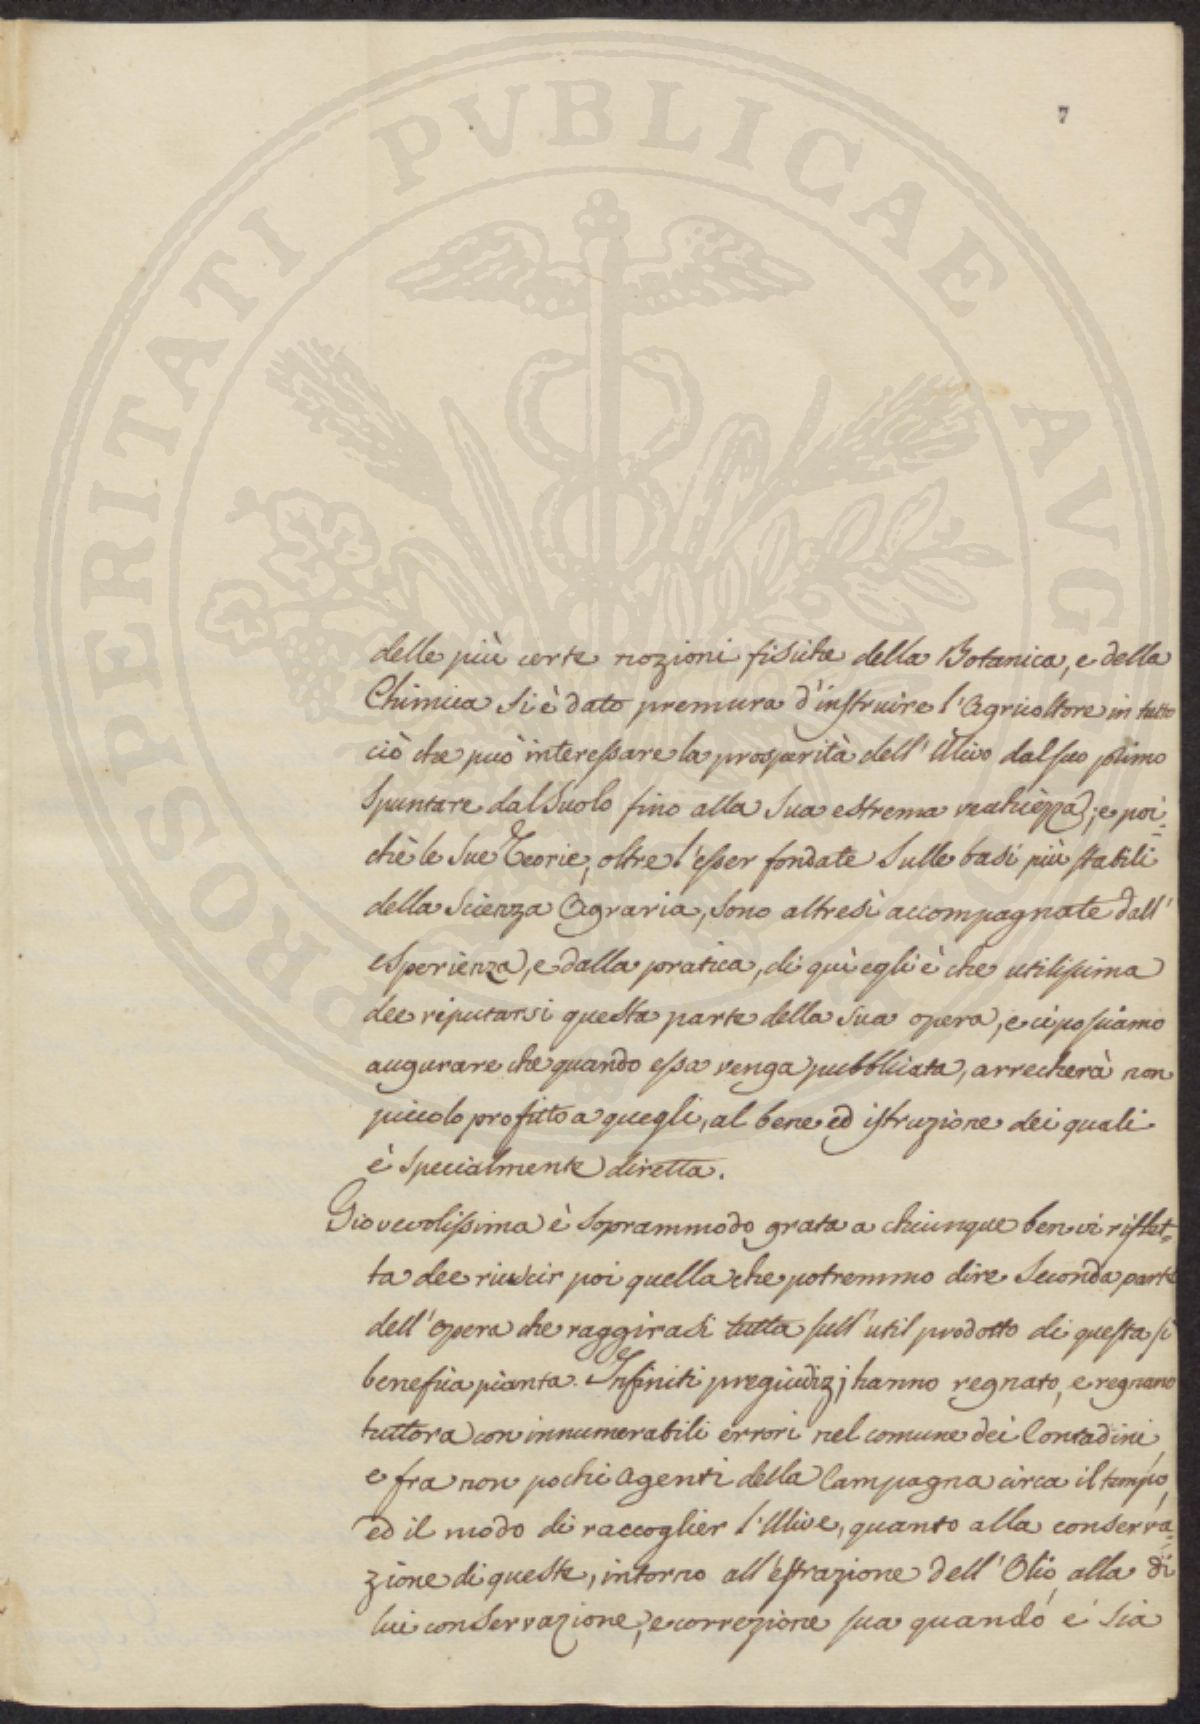 PROSPERITATI PVBLICAE AVG
7
delle più certe nozioni fisiche della Botanica, e della
Chimica si è dato premura d'instruire l'Agricoltore in tutto
ciò che può interessare la prosperità dell'Ulivo dal suo primo
spuntare dal suolo fino alla sua estrema vecchiezza; e poi-
chè le sue Teorie, oltre l'esser fondate sulle basi più stabili
della Scienza Agraria, sono altresì accompagnate dall'
esperienza, e dalla pratica, di quì egli è che utilissima
dee riputarsi questa parte della sua opera, e ci possiamo
augurare che quando essa venga pubblicata, arrecherà non
piccolo profitto a quegli, al bene ed istruzione dei quali
è specialmente diretta.
Giovevolissima è soprammodo grata a chiunque ben vi riflet-
ta dee riuscir poi quella che potremmo dire seconda parte
dell'opera che raggirasi tutta sull'util prodotto di questa sì
benefica pianta. Infiniti pregiudizj hanno regnato, e regnano
tuttora con innumerabili errori nel comune dei Contadini,
e fra non pochi Agenti della Campagna circa il tempo,
ed il modo di raccoglier l'Ulive, quanto alla conserva-
zione di queste, intorno all'estrazione dell'Olio, alla di
lui conservazione, e correzione sua quando e' sia